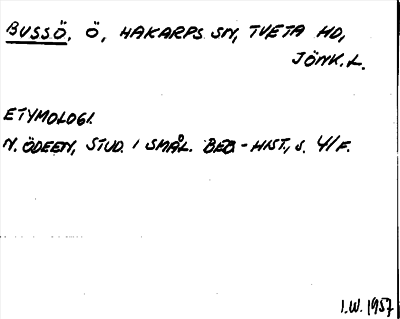 BUSSÖ, Ö, HAKARPS SN, TVETA HD,
JÖNK. L.
ETYMOLOGI.
N. ÖDEEN, STUD. I SMÅL. BEB-HIST., S. 41 F.
I.W. 1957